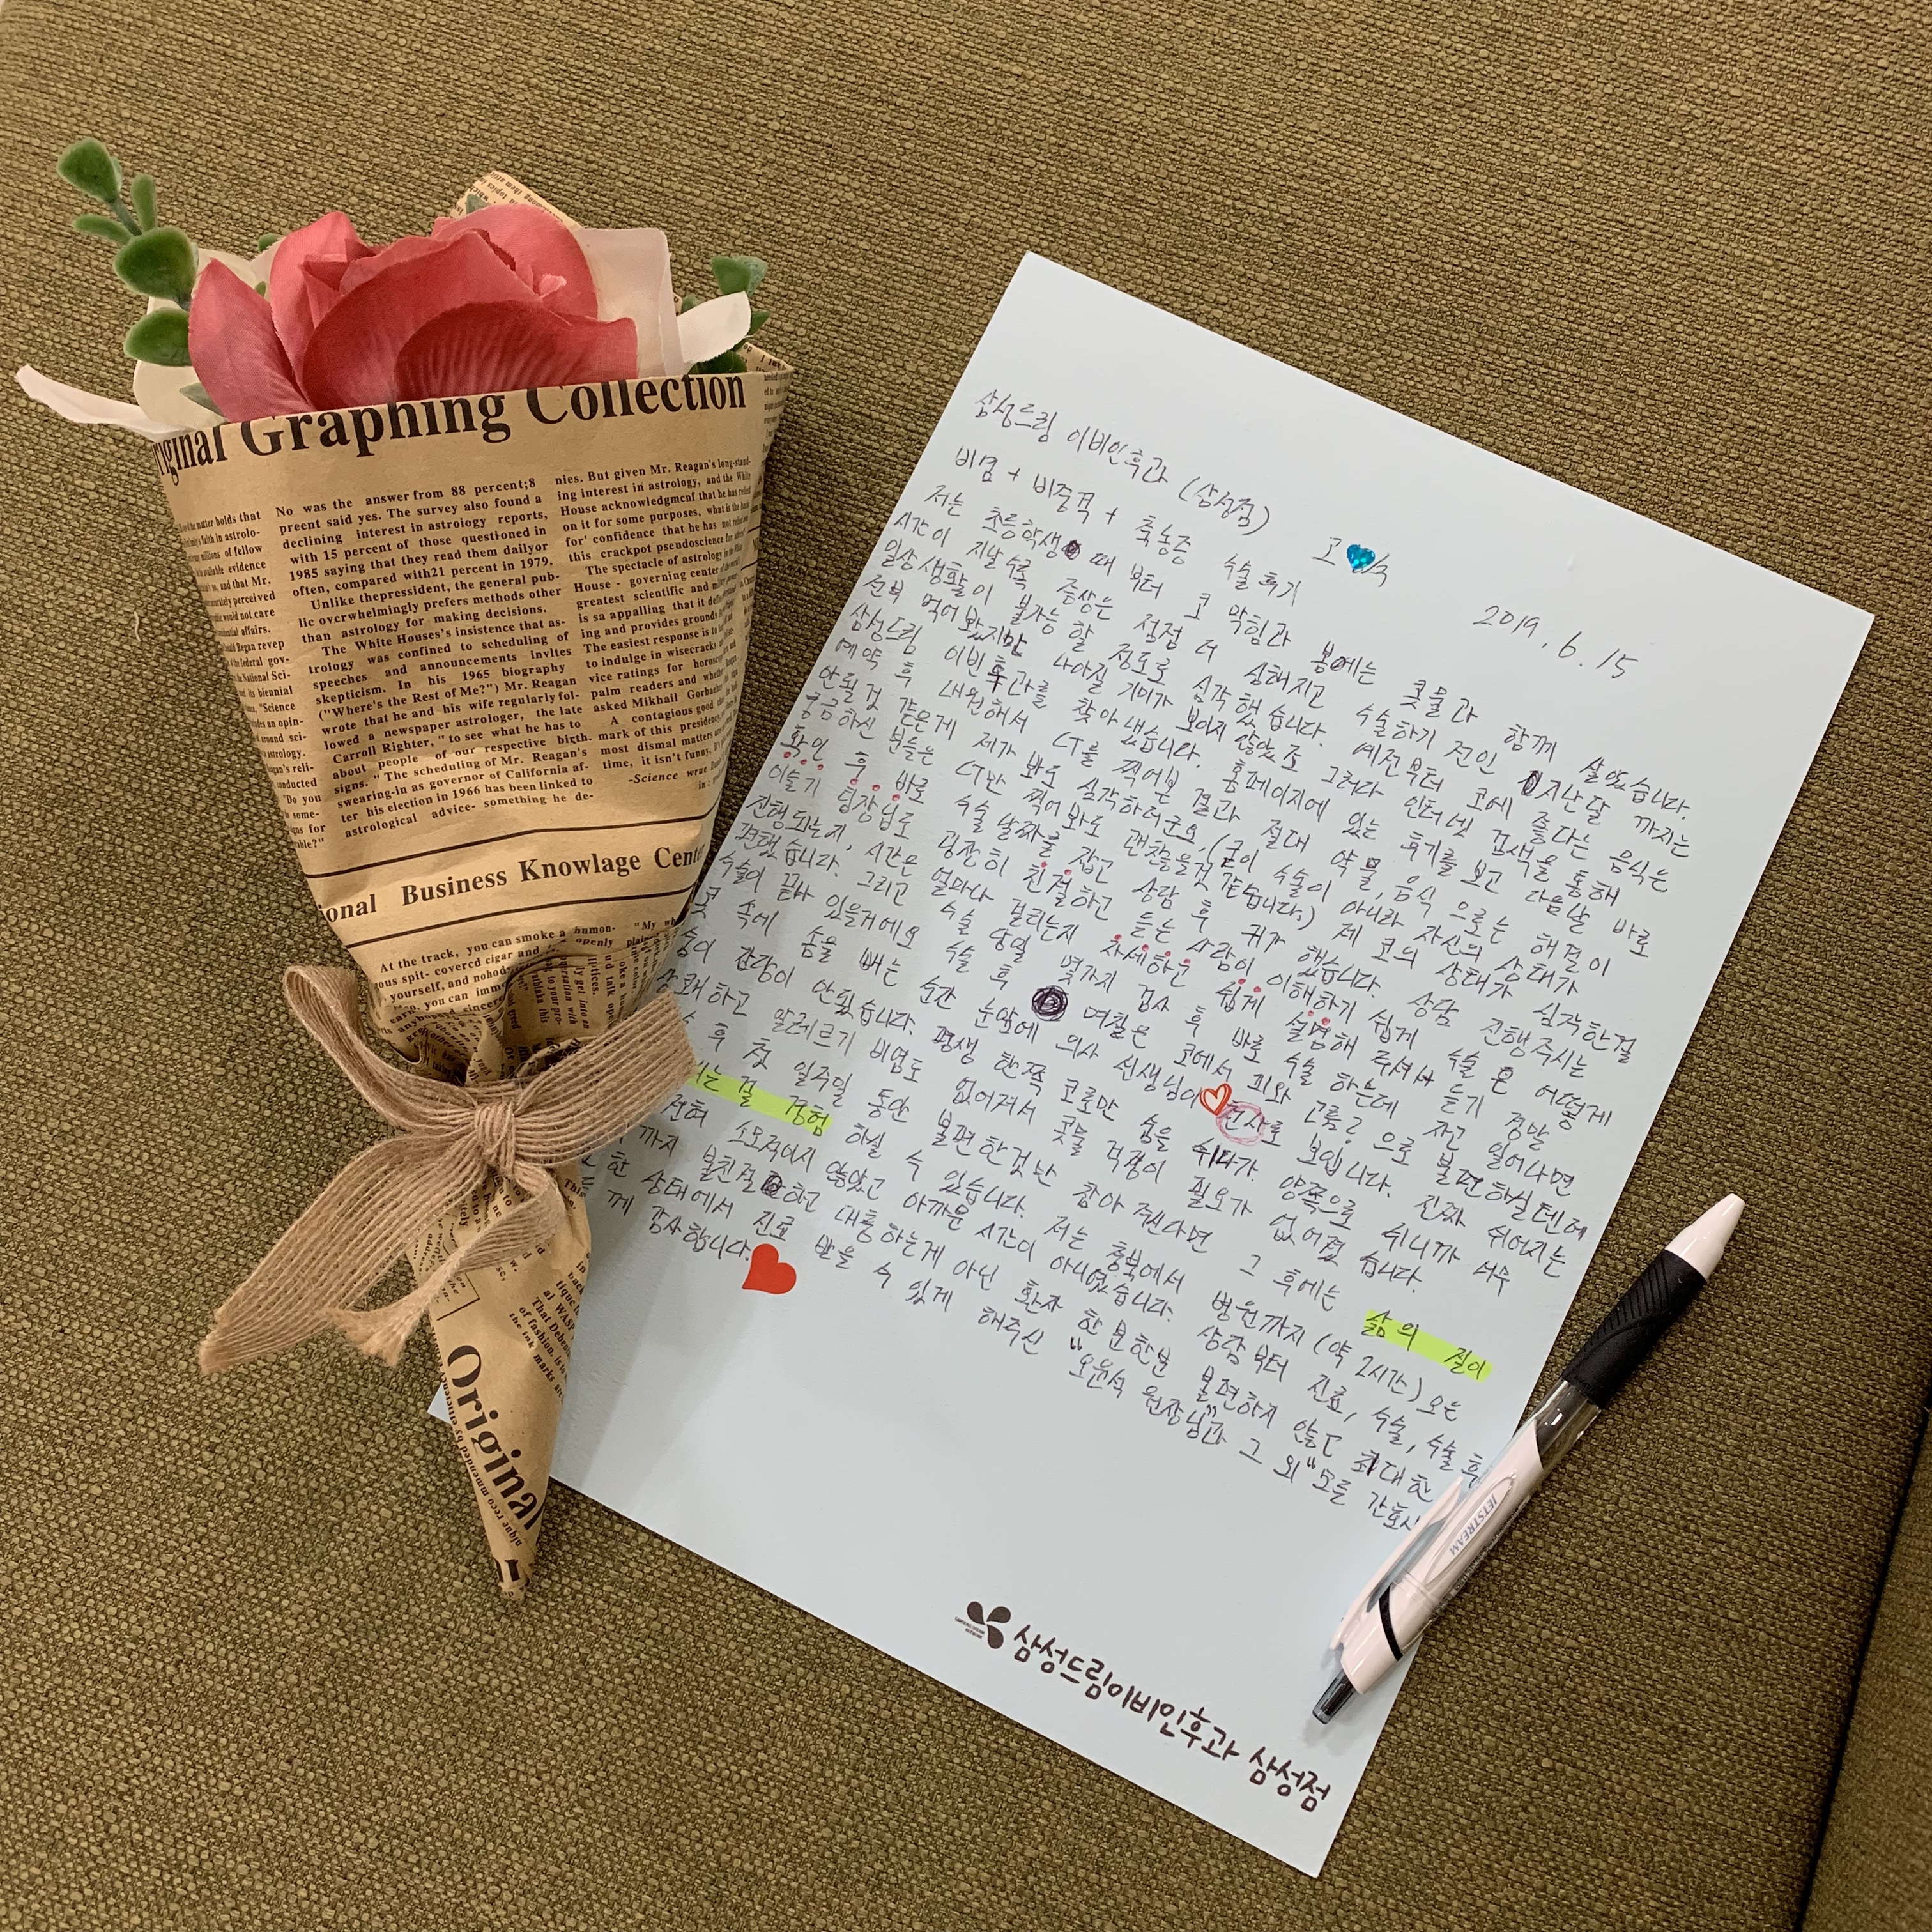 삼성드림 이비인후과 (삼성점)
비염 + 비중격 + 축농증 수술 후기
고
2019. 6. 15
저는 초등학생 때 부터 코 막힘과 봄에는 콧물과 함께 살았습니다.
시간이 지날수록 증상은 점점 더 심해지고 수술하기 전인 지난달 까지는
일상생활이 불가능 할 정도로 심각 했습니다. 예전부터 코에 좋다는 음식은
전부 먹어봤지만 나아질 기미가 보이지 않았죠 그러다 인터넷 검색을 통해
삼성드림 이빈후과를 찾아냈습니다. 홈페이지에 있는 후기를 보고 다음날 바로
예약 후 내원해서 CT를 찍어본 결과 절대 약물, 음식 으로는 해결이
안될것 같은게 제가 봐도 심각하더군요. (굳이 수술이 아니라 자신의 상태가
궁금하신 분들은 CT만 찍어봐도 괜찮을것 같습니다.) 제 코의 상태가 심각한걸
확인 후 바로 수술 날짜를 잡고 상담 후 귀가 했습니다. 상담 진행주시는
이슬기 팀장님도 굉장히 친절하고 듣는 사람이 이해하기 쉽게 수술은 어떻게
진행되는지, 시간은 얼마나 걸리는지 자세하고 쉽게 설명해 주셔서 듣기 정말
편했습니다. 그리고 수술 당일 몇가지 검사 후 바로 수술 하는데 자고 일어나면
수술이 끝나 있을거에요 수술 후 며칠은 코에서 피와 고름? 으로 불편하실텐데
콧 속에 솜을 빼는 순간 눈앞에 의사 선생님이 천사로 보입니다. 진짜 쉬어지는
숨이 감당이 안됬습니다. 평생 한쪽 코로만 숨을 쉬다가 양쪽으로 쉬니까 너무
상쾌하고 알레르기 비염도 없어져서 콧물 걱정이 필요가 없어졌습니다.
후 첫 일주일 동안 불편한것만 참아 주신다면 그 후에는 삶의 질이
는 걸 경험 하실 수 있습니다. 저는 충북에서 병원까지 (약 2시간) 오는
전혀 소모적이지 않았고 아까운 시간이 아니였습니다. 상담부터 진료, 수술, 수술 후
까지 불친절 하고 대충하는게 아닌 환자 한분한분 불편하지 않도 최대한
한 상태에서 진료 받을 수 있게 해주신 "오윤석 원장님"과 그 외 "모든 간호사
께 감사합니다.
삼성드림이비인후과 삼성점
JETSTREAM
Original Graphing Collection
No was the answer from 88 percent;8
preent said yes. The survey also found a
declining interest in astrology reports,
with 15 percent of those questioned in
1985 saying that they read them dailyor
often, compared with21 percent in 1979.
Unlike thepresident, the general pub-
lic overwhelmingly prefers methods other
than astrology for making decisions.
The White Houses's insistence that as-
trology was confined to scheduling of
speeches and announcements invltes
skepticism. In his 1965 biography
("Where's the Rest of Me?") Mr. Reagan
wrote that he and his wife regularly fol-
lowed a newspaper astrologer, the late
Carroll Righter, "to see what he has to
about people of our respective birth.
signs." The scheduling of Mr. Reagan's
swearing-in as governor of California af-
ter his election in 1966 has been linked to
astrological advice- something he de-
nies. But given Mr. Reagan's long-stand-
ing interest in astrology, and the White
House acknowledgmenf that he has relied
on it for some purposes, what is the
for' confidence that he has not
this crackpot pseudoscience
The spectacle of astrology in the White
House - governing center of the
greatest scientific and
is sa appalling that it
ing and provides grounds
The easiest response is to
to indulge in wisecracks
vice ratings for
palm readers and
asked Mikhail
A contagious good
mark of this presidency,
most dismal matters
time, it isn't funny,
-Science
Business Knowlage
At the track, you can smoke a
ous spit- covercd cigar and
yourself, and
Original